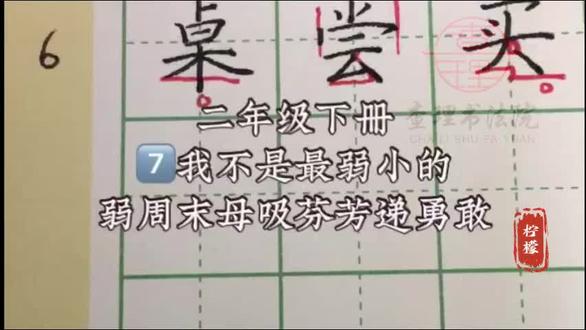 6 桌 尝 买
查理书法院
CHA LI SHU FA YUAN
二年级下册
7我不是最弱小的
弱周末母吸芬芳递勇敢
柠檬